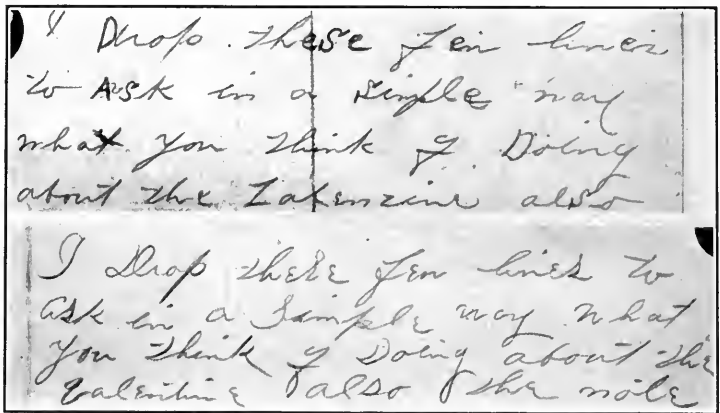 I Drop these few lines
to ASk in a simple way
what you think of Doing
about the also
I Drop these few lines to
ask in a Simple way what
you think of Doing about the
Valentine also the note